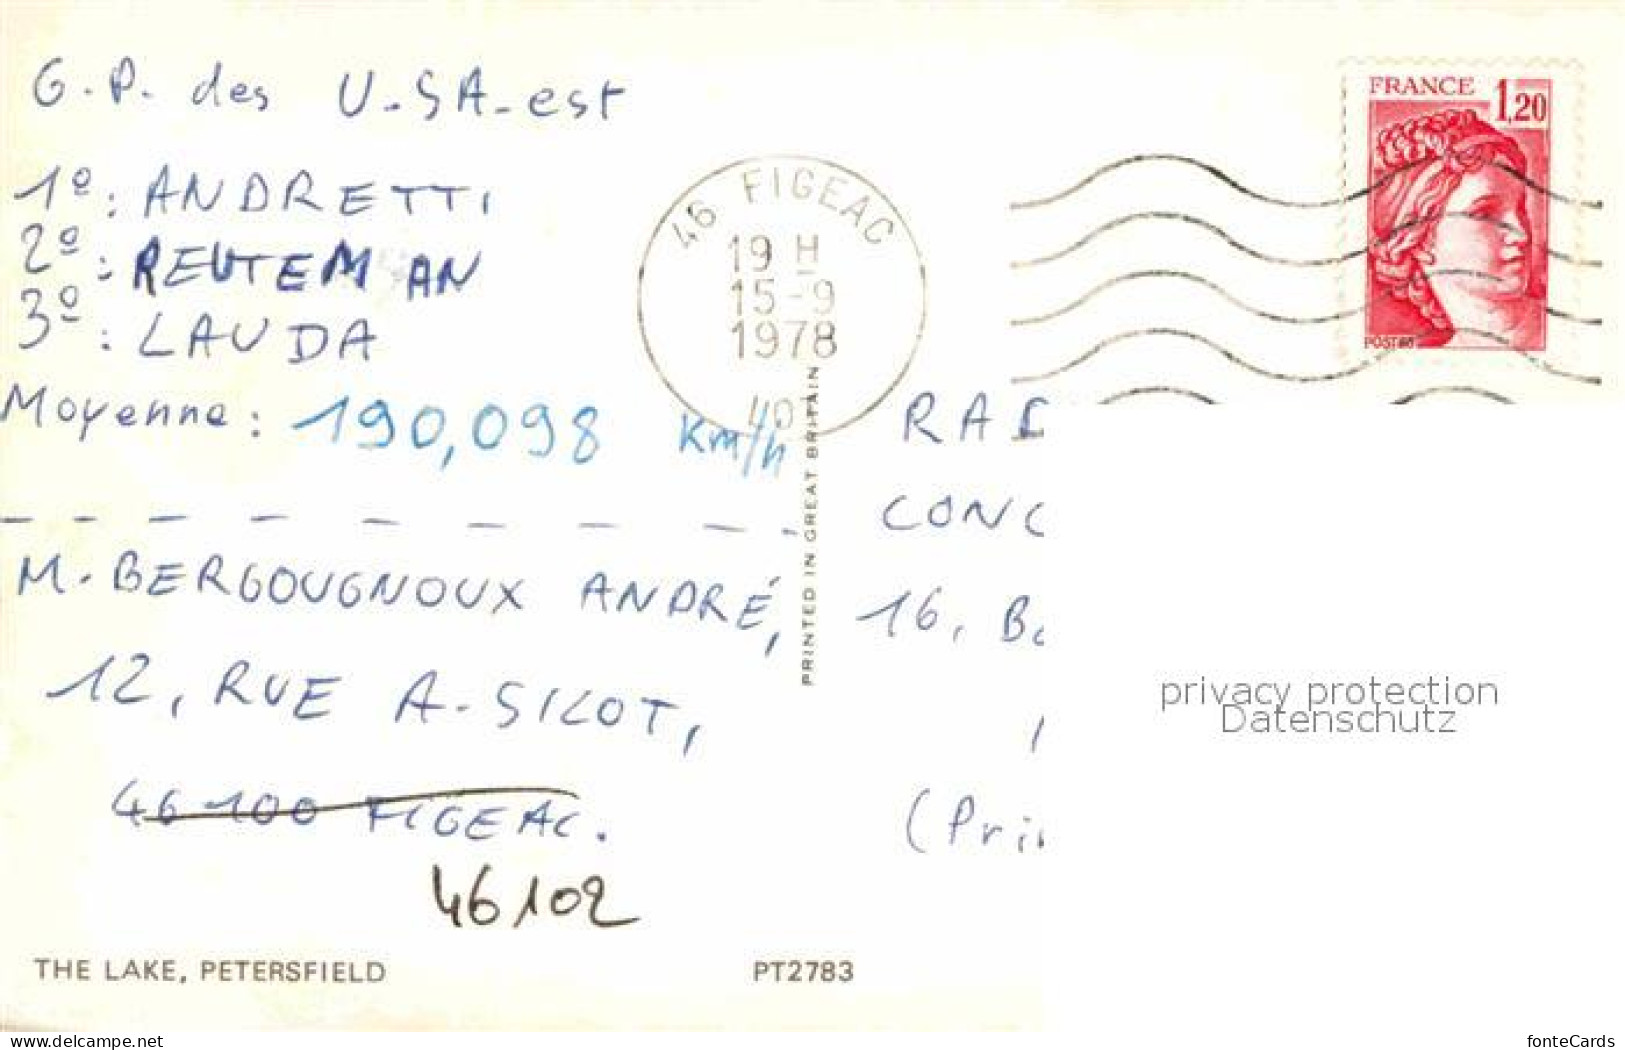 G.P. des U.SA-est
1º: ANDRETTI
2º: REUTEMAN
3º: LAUDA
Moyenne: 190,098 Km/h
M. BERGOUGNOUX ANDRÉ,
12, RUE A. SILOT,
46100 FIGEAC.
46102
THE LAKE, PETERSFIELD
PT2783
PRINTED IN GREAT BRITAIN
46 FIGEAC
19 H
15-9
1978
FRANCE 1,20
POSTES
RAD
CONC
16, Bo
(Prin
privacy protection
Datenschutz
www.delcampe.net
fonteCards